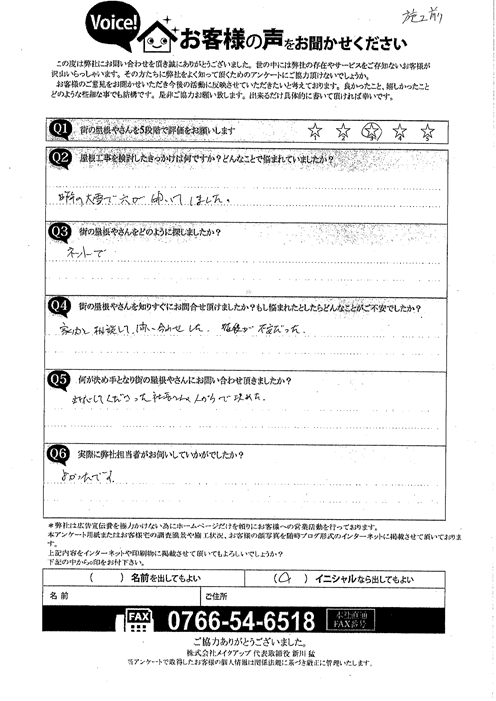 施工前
Voice!
お客様の声をお聞かせください
この度は弊社にお問い合わせを頂き誠にありがとうございました。世の中には弊社の存在やサービスをご存知ないお客様が
沢山いらっしゃいます。その方たちに弊社をよく知って頂くためのアンケートにご協力頂けないでしょうか。
お客様のご意見をお聞かせいただき今後の活動に反映させていただきたいと考えております。良かったこと、嬉しかったこと
どのような些細な事でも結構です。是非ご協力お願い致します。出来るだけ具体的に書いて頂ければ幸いです。
Q1 街の屋根やさんを5段階で評価をお願いします
1 2 3 4 5
Q2 屋根工事を検討したきっかけは何ですか？どんなことで悩まれていましたか？
昨年の大雪で穴が
しました。
Q3 街の屋根やさんをどのように探しましたか？
ネットで
Q4 街の屋根やさんを知りすぐにお問合せ頂けましたか？もし悩まれたとしたらどんなことがご不安でしたか？
相談して、問い合わせした。
不安だった。
Q5 何が決め手となり街の屋根やさんにお問い合わせ頂きましたか？
対応してくださった社員さんの人がらで決めた。
Q6 実際に弊社担当者がお伺いしていかがでしたか？
よかったです。
＊弊社は広告宣伝費を極力かけない為にホームページだけを頼りにお客様への営業活動を行っております。
本アンケート用紙またはお客様宅の調査風景や施工状況、お客様の顔写真を随時ブログ形式のインターネットに掲載させて頂いておりま
す。
上記内容をインターネットや印刷物に掲載させて頂いてもよろしいでしょうか？
下記の中から○印をお付下さい。
（　　）名前を出してもよい
（○）イニシャルなら出してもよい
名 前
ご住所
FAX 0766-54-6518 本社直通 FAX番号
ご協力ありがとうございました。
株式会社メイクアップ 代表取締役 新川 猛
当アンケートで取得したお客様の個人情報は関係法規に基づき厳正に管理いたします。